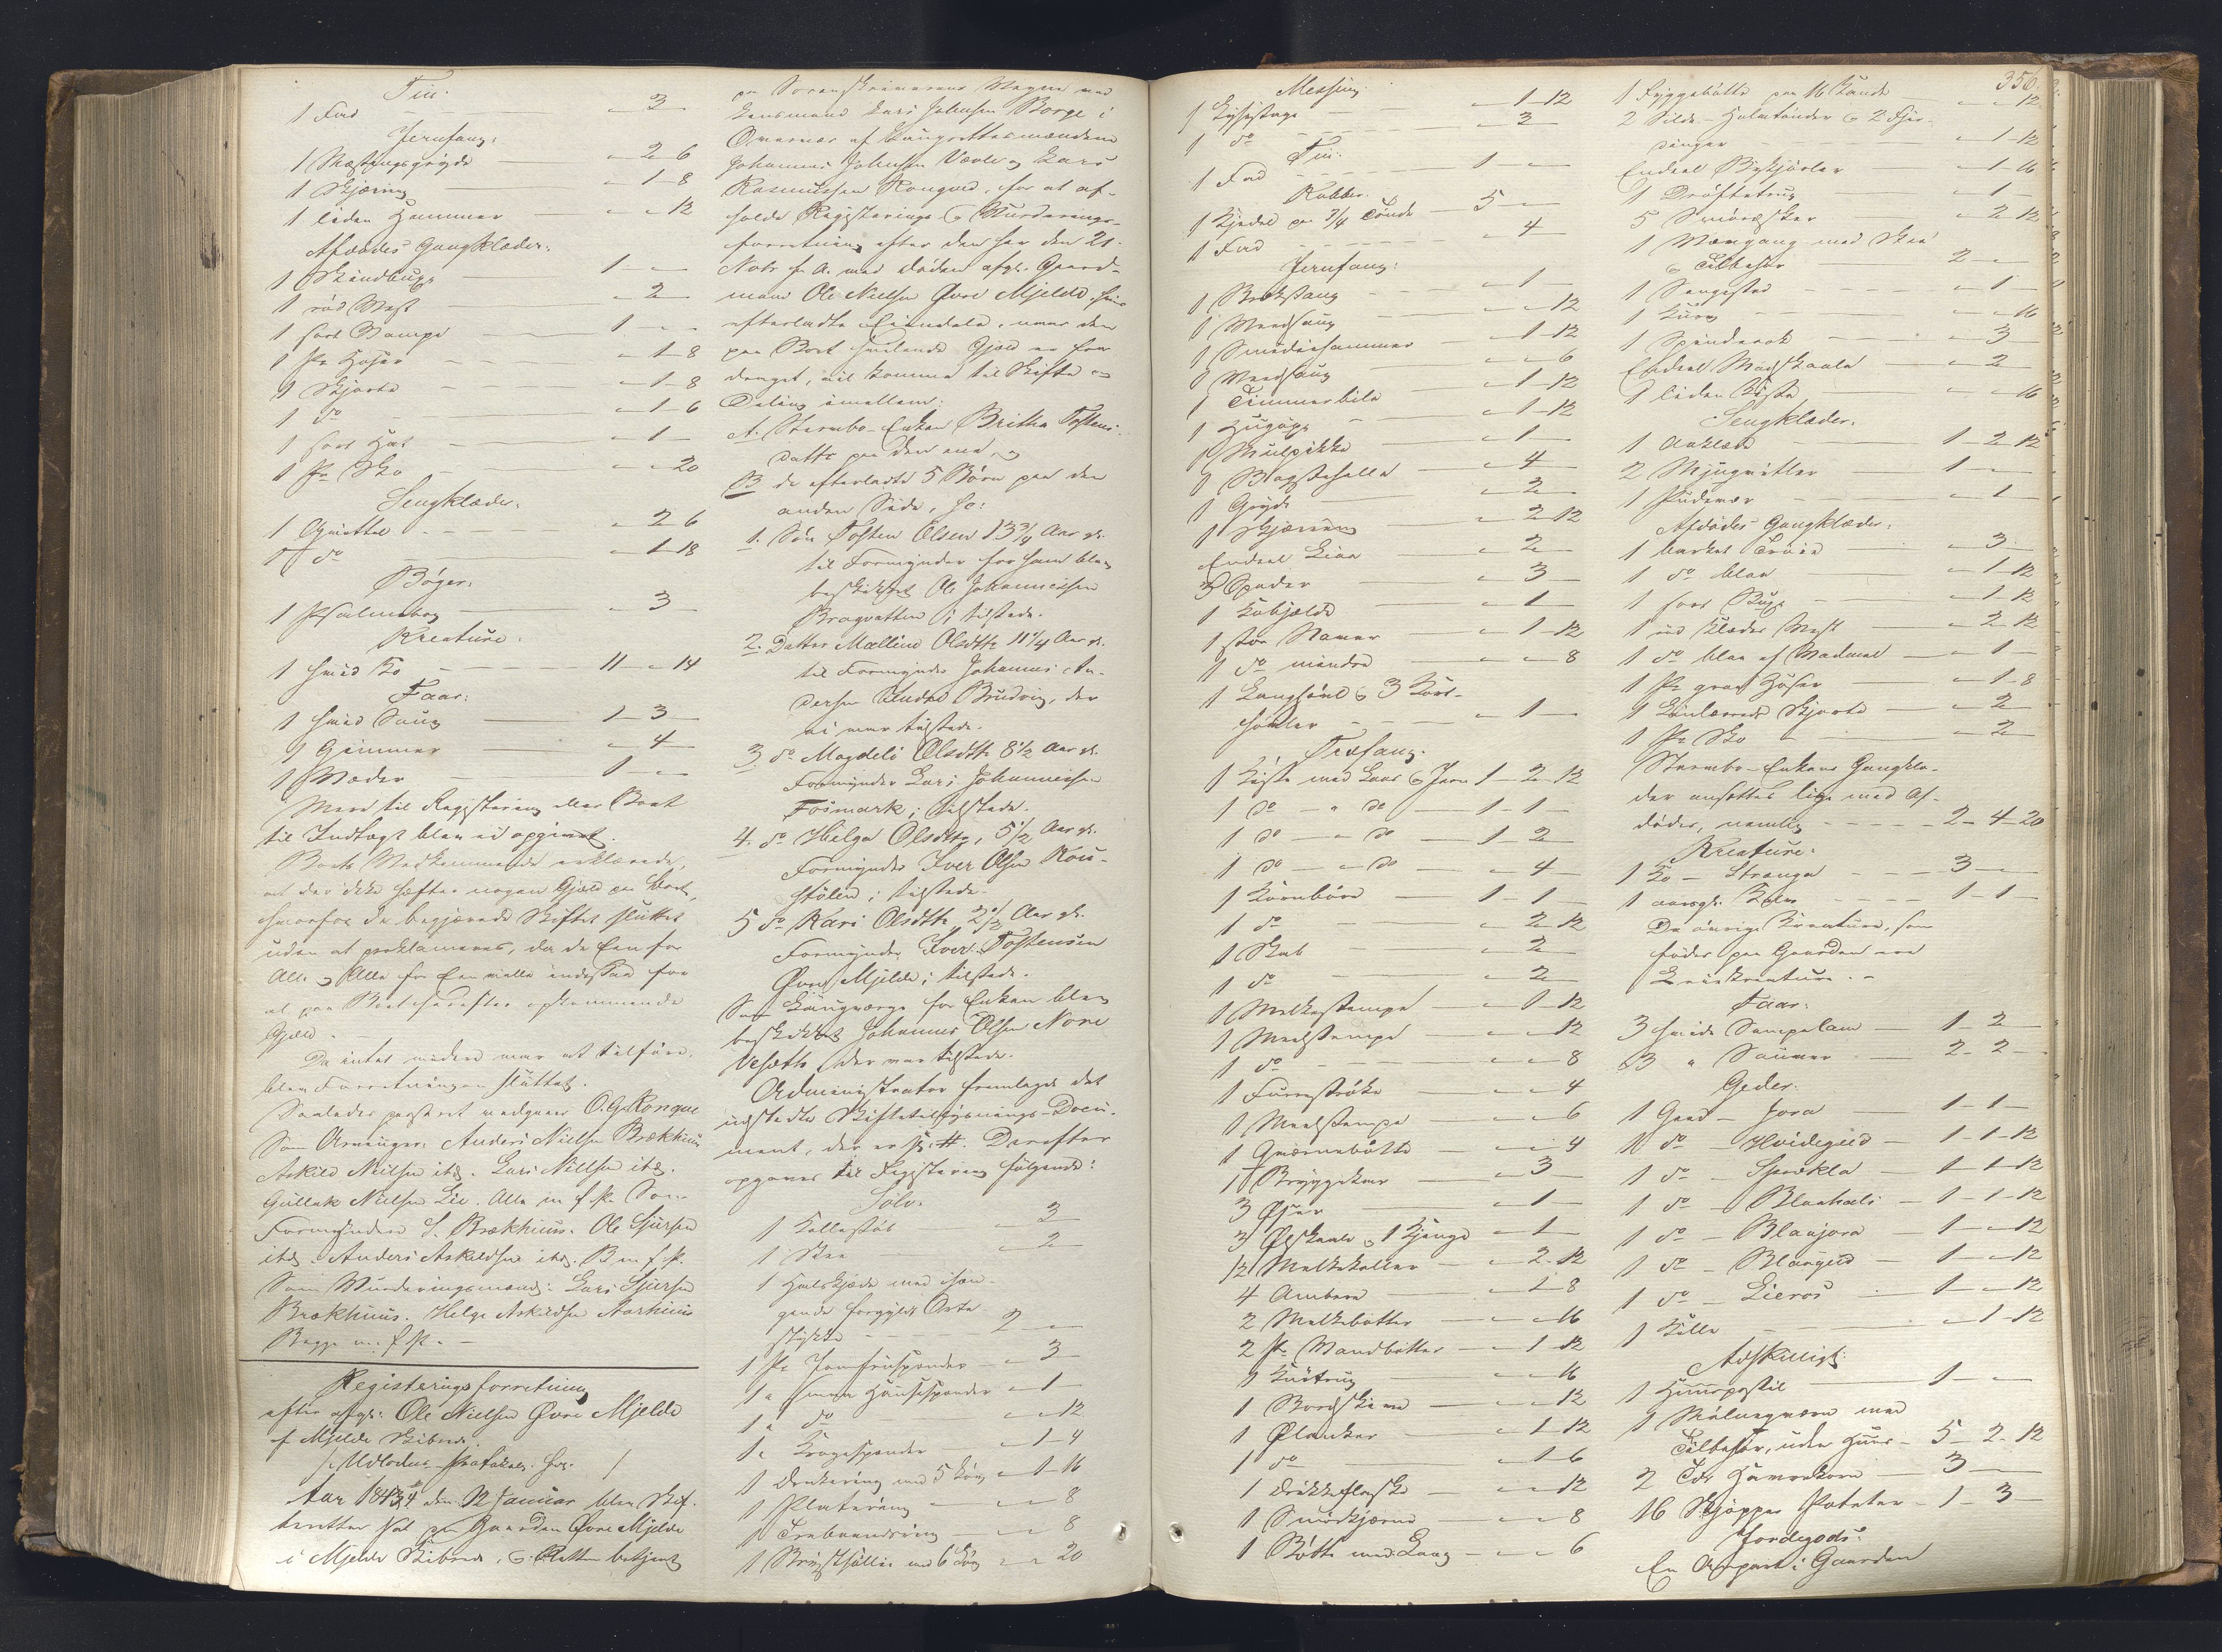 Tin:
1 Fad — „ 3 „
Jernfang:
1 Mæssingsgryde — „ 2 6
1 Skjæring — „ 1 8
1 liden Hammer — „ „ 12
Afdødes Gangklæder:
1 Skindbuxe — 1 „ „
1 rød Vest — „ 2 „
1 sort Vampe — 1 „ „
1 Pr Hoser — „ 1 8
1 Skjorte — „ 1 8
1 do — „ 1 6
1 sort Hat — „ 1 „
1 Pr Sko — „ „ 20
Sengklæder:
1 — „ 2 6
1 do — „ 1 18
Bøger:
1 Psalmebog — „ 3 „
Kreature:
1 hvid Ko — 11 „ 14
Faar:
1 hvid Saug — 1 3 „
1 Gimmer — „ 4 „
1 Væder — 1 „ „
Mere til Registering eller Boet
til Indtægt blev ei opgivet.
Boets Vedkommende erklærede,
at der ikke hæfter nogen Gjæld paa Boet,
hvorfor de begjærede Skiftet sluttet
uden at proklameres, da de Een for
Alle og Alle for Een ville indestaae for
al paa Boet herefter opkommende
Gjæld.
Da intet videre var at tilføre,
blev Forretningen sluttet.
Saaledes passeret vedgaaer O. G. Konque
Som Arvinger: Anders Nielsen Brækhuus
Askild Nielsen ibd. Lars Nielsen ibd.
Gullak Nielsen Lie. Alle m. f. P. Som
Formyndere S. Brækhuus. Ole Sjursen
ibd. Anders Askildsen ibd. B m. f. P.
Som Vurderingsmænd: Lars Sjursen
Brækhuus. Helge Askildsen Aarhuus
Begge m. f. P. —
Registeringsforretning
efter afg: Ole Nielsen Øvre Mjelde
i Mjelde Skibrede.
Aar 1844 den 12 Januar blev Skif-
teretten sat paa Gaarden Øvre Mjelde
i Mjelde Skibrede, og Retten betjent
paa Sorenskriverens Vegne ved
Lensmand Lars Johnsen Borge i
Overvær af Laugrettesmændene
Johannes Johnsen Vævle og Lars
Rasmussen Rongved, for at af-
holde Registerings og Vurderings-
forretning efter den her den 21.
Novbr f. A. ved Døden afgl. Gaard-
mand Ole Nielsen Øvre Mjelde, hvis
efterladte Eiendele, naar den
paa Boet hvilende Gjæld er fra-
draget, vil komme til Skifte og
Deling imellem:
A. Stervbo-Enken Britha Tostens-
datter paa den ene, og
B de efterladte 5 Børn paa den
anden Side, so:
1. Søn Tosten Olsen 13¾ Aar gl.
til Formynder for ham blev
beskikket Ole Johannessen
Bragvatten; tilstede.
2. Datter Mallene Olsdtr 11¼ Aar gl.
til Formynder Johannes An-
dersen Indre Brudvig, der
ei var tilstede.
3. do Magdeli Olsdtr 8½ Aar gl.
Formynder Lars Johannessen
Fosmark; tilstede.
4. do Helga Olsdtr, 5½ Aar gl.
Formynder Iver Olsen Rou-
stølen; tilstede.
5 do Kari Olsdtr 2½ Aar gl.
Formynder Iver Tostensen
Øvre Mjelde; tilstede.
Som Laugværge for Enken blev
beskikket Johannes Olsen Nore
der var tilstede.
Administrator fremlagde det
udstedte Skiftetilsynings-Docu-
ment, der er #. Derefter
opgaves til Registering følgende:
Sølv:
1 — „ 3 „
1 Skee — „ 2 „
1 Halskjæde med ihæn-
gende forgyldt Orte
stykke — 2 „ „
1 Pr — „ 3 „
1 „ smaa — „ 1 „
1 „ do — „ „ 12
1 „ Kragespænder — „ 1 4
1 med 5 Løv „ 1 16
1 Platering — „ „ 8
1 — „ „ 8
1 Brystsølie med 6 Løv „ „ 20
356.
Messing
1 Lysestage — „ 1 12
1 do — „ 3 „
Tin:
1 Fad — 1 „ „
Kobber.
1 Kjedel paa ¾ Tønde — 5 „ „
1 Fad — „ 4 „
Jernfang:
1 Brækstang — „ 1 „
1 — „ „ 12
1 Smediehammer — „ 1 12
1 — „ „ 6
1 Timmerbile — „ 1 12
1 Hugøxe — „ 1 12
1 — „ 1 „
1 Bagstehelle — „ 4 „
1 Gryde — „ 2 „
1 Skjæring — „ 2 12
Endeel Liaa — „ 2 „
3 Spader — „ 3 „
1 Kobjelde — „ 1 „
1 stor Naver — „ 1 12
1 do mindre — „ „ 8
1 Langhøvl og 3 Kort-
høvler — „ 1 „
Træfang:
1 Kiste med Laas og Jern 1 2 12
1 do „ do — 1 1 „
1 do „ do — 1 2 „
1 do „ do — „ 4 „
1 — 1 1 „
1 do — „ 2 12
1 Skab — „ 2 „
1 do — „ 2 „
1 Melkestampe — „ 1 12
1 Meelstampe — „ „ 12
1 do — „ „ 8
1 — „ „ 4
1 Meelstampe — „ „ 6
1 — „ „ 4
1 Bryggekar — „ 3 „
3 — „ 1 „
3 Ølskaale og 1 Kjenge — „ 1 „
12 Melkekoller — „ 2 12
4 Ambere — „ 1 8
2 Melkebøtter — „ „ 16
2 Pr Vandbøtter — „ 1 12
1 — „ „ 16
1 — „ „ 12
1 Ølanker — „ 1 12
1 do — „ 1 6
1 Drikkeflaske — „ „ 12
1 Smørkjerne — „ „ 8
1 Bøtte med Laag — „ „ 6
1 Tyggebøtte paa 16 Kande — „ „ 12
2 Silde-Halvtønder og 2 Fjer-
dinger — „ 1 12
Endeel — „ 1 16
1 Drøftetrug — „ 1 „
5 Smørasker — „ 2 12
1 Vævgang med Skee
og Tilbehør — 2 „ „
1 Sengested — „ 1 „
1 Kurv — „ „ 16
1 Spinderok — „ 3 „
Endeel Madskaale — „ 2 „
1 liden Kiste — „ „ 16
Sengklæder:
1 Aaklæde — 1 2 12
2 — 1 „ „
1 Pudevær — „ 1 „
Afdødes Gangklæder:
1 Trøie — „ 3 „
1 do blaa — „ 1 12
1 sort Buxe — „ 1 12
1 rød Klædes Vest — „ 2 12
1 do blaa af Vadmel — „ 1 „
1 Pr graa Hoser — „ 1 8
1 Linlærreds Skjorte — „ 2 „
1 Pr Sko — „ 2 „
Stervbo-Enkens Gangklæ-
der ansættes lige med Af-
dødes, nemlig — 2 4 20
Kreature:
1 Ko — Stranga — 3 „ „
1 aarsgl. Kalv — 1 1 „
De øvrige Kreature, som
fødes paa Gaarden ere
Leiekreature. —
Faar:
3 hvide — 1 2 „
3 „ — 2 2 „
Geder:
1 Geed — Jora — 1 1 „
1 do Hvidegeed — 1 1 12
1 do — Sprækla — 1 1 12
1 do — Blaahals — 1 1 12
1 do — Blaajora — 1 „ 12
1 do — Blaageed — 1 „ 12
1 do — Lieros — 1 „ 12
1 Kille — „ 1 12
Adskilligt:
1 Huuspostil — 1 „ „
1 med
Tilbehør, uden Huus — 5 2 12
2 Tdr Havrekorn — 3 „ „
16 Skjæpper Poteter — 1 3 „
Jordegods:
En Aapart i Gaarden